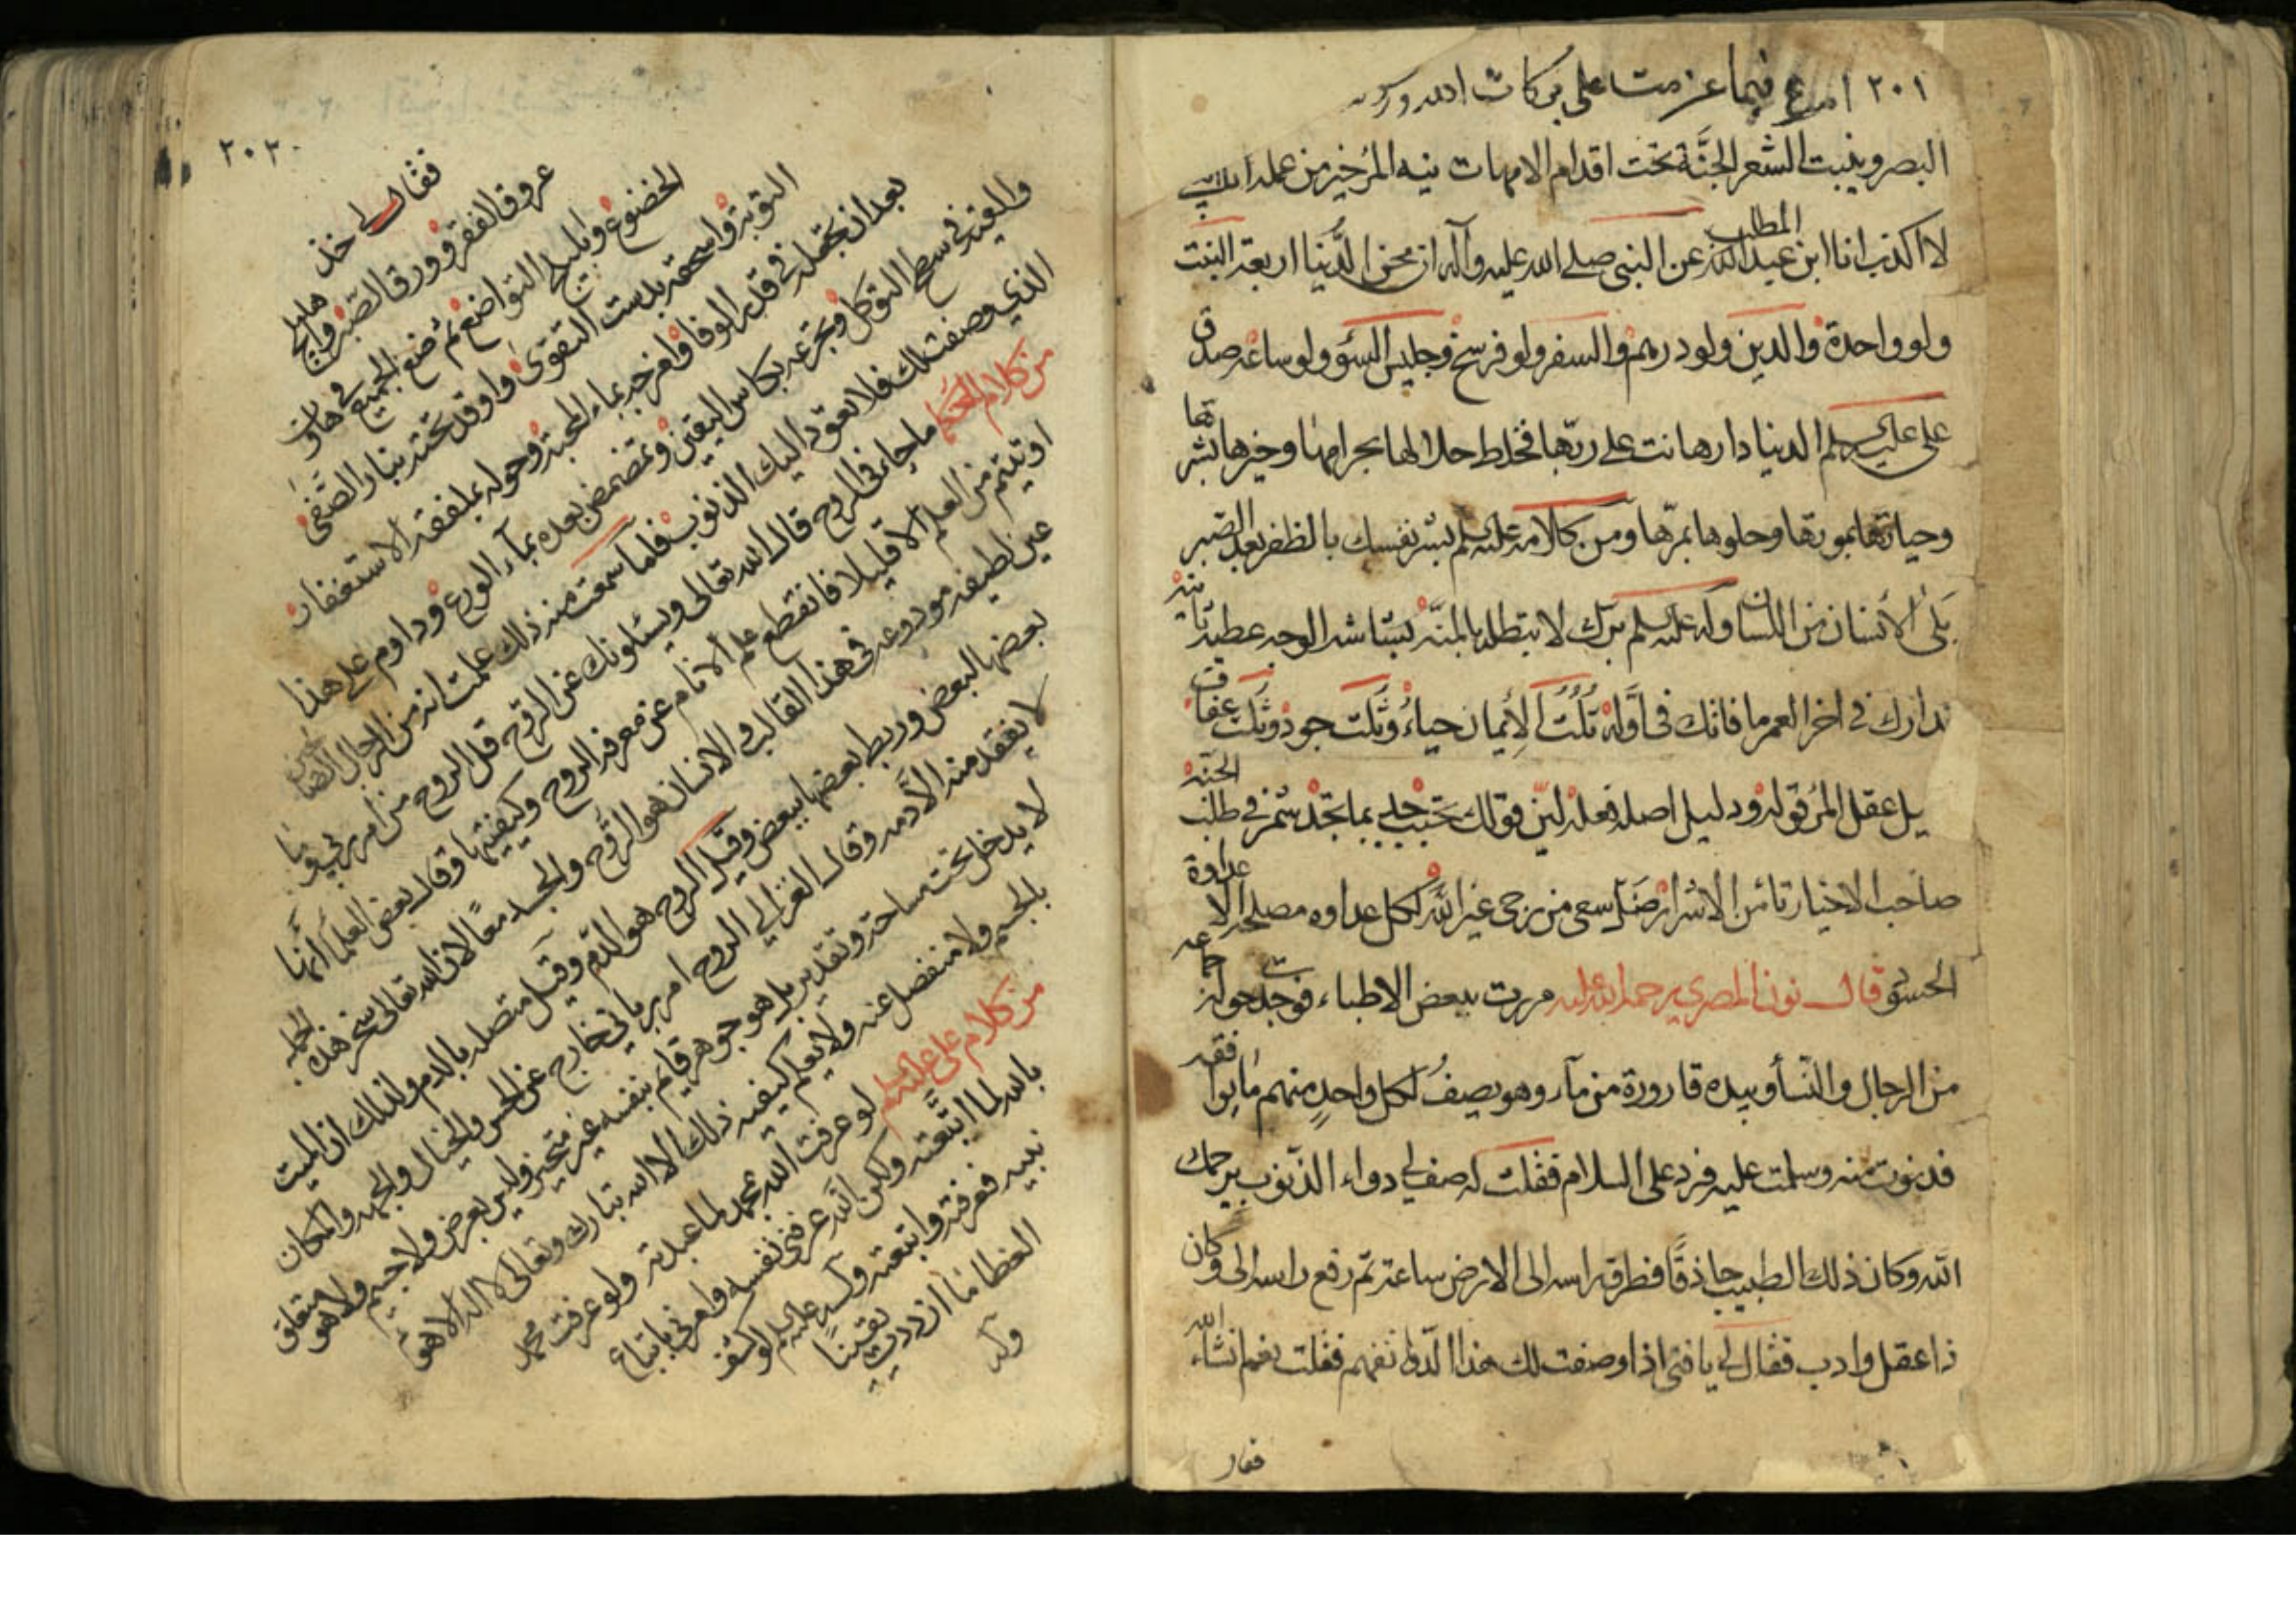 ٢٠١ اسرع فيما عزمت على بركات الله
البصر وينبت الشعر الجنّة تحت اقدام الامهات نيه المرء خير من عمله
لا اكذب انا ابن عبد المطلب عن النبي صلى الله عليه وآله از محن الدّنيا اربعة البنت
ولو واحدة والدين ولو درهم والسفر ولو فرسخ وجليس السؤ ولو ساعة صدق
على عليه السلم الدنيا دار هانت على ربّها فخلط حلالها بحرامها وخيرها بشرها
وحياتها بموتها وحلوها بمرّها ومن كلامه عليه سلم بشر نفسك بالظفر بعد الصبر
بلى الأنسان من اللسان وله عليه سلم برّك لا بتطله بالمنّه بشاشه الوجه عطيه ثانيه
تدارك في اخر العمر ما فاتك في اوّله ثلث الأيمان حياء وثلث جود وثلث
يل عقل المرء قوله ودليل اصله فعله ليّن قولك تحبب جلس بما تجد شمر في طلب الجنّة
صاحب الاخيار تأمن الاشرار ضلّ سعى من رجى غير اللّه لكل عداوه مصلحه الا عداوة
الحسود قال نون المصري رحمه الله عليه مررت ببعض الاطباء فوجدت حوله جماعه
من الرجال والنسأ وبيده قارورة من مآء وهو يصف لكل واحدٍ منهم ما يوافقه
فدنوت منه وسلمت عليه فرد على السلام فقلت له صف لي دواء الذنوب يرحمك
الله وكان ذلك الطبيب حاذقًا فطرق راسه الى الارض ساعة ثم رفع راسه الى وكان
ذا عقل وادب فقال لي يا فتى اذا وصفت لك هذا الدّوا تفهم فقلت نعم انشاء الله
فقال
٢٠٢
فقال لي خذ
عروق الفقر وورق الصّبر واهليلج
الخضوع وبليلج التواضع ثم ضع الجميع في هاون
التوبة واسحقه بدست التقوى واوقد تحته بنار الصّفى
بعد ان تجعله في قدر الوفا وامزجه بماء المحبة وحوله بملعقة الاستغفار
والغيه في سطح التوكل وتجرعه بكاس اليقين وتمضمض بعده بمآء الورع وداوم على هذا
الذي وصفت لك فلا تعود اليك الذنوب فلما سمعت منه ذلك علمت انه من الرجال الصالحين
من كلام الحكما ما جاء في الروح قال الله تعالى ويسئلونك عن الروح قل الروح من امر ربي وما
اوتيتم من العلم الا قليلا فانقطع علم الانام عن معرفه الروح وكيفيتها وقال بعض العلما انها
عين لطيفه مودوعه في هذا القالب والانسان هو الرّوح والجسد معًا لان الله تعالى سخر هذه الجمله
بعضها لبعض وربط بعضها ببعض وقيل الروح هو الدّم وقيل متصله بالدم ولذلك ان الميت
لا يفقد منه الّا دمه وقال الغزالي الروح امر ربّاني خارج عن الحس والخيال والجهه والمكان
لا يدخل تحت مساحة وتقدير بل هو جوهر قايم بنفسه غير متحيز وليس بعرض ولا جسم ولا هو متعلق
بالجسم ولا منفصل عنه ولا يعلم كيفيه ذلك الا الله تبارك وتعالى لا اله الا هو
من كلام على عليه سلم لو عرفت اللّه بمحمد لما عبدته ولو عرفت محمد
بالله لما اتّبعته ولكن اللّه عرفني نفسه وامرني باتباع
نبيه فعرفته واتبعته وله عليه سلم لو كشف
الغطا ما ازددت يقيناً
وله